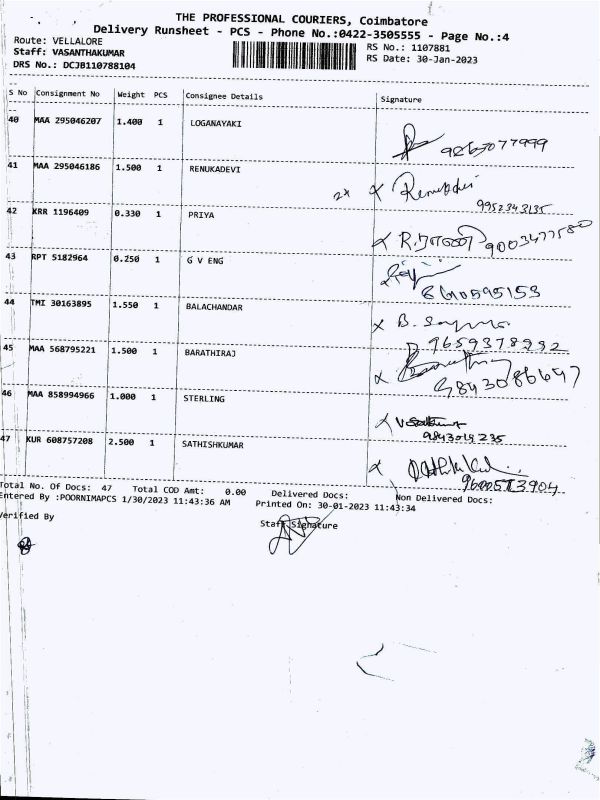 THE PROFESSIONAL COURIERS, Coimbatore
Delivery Runsheet - PCS - Phone No.:0422-3505555 - Page No.:4
Route: VELLALORE
Staff: VASANTHAKUMAR
DRS No.: DCJB110788104
RS No.: 1107881
RS Date: 30-Jan-2023
S No Consignment No Weight PCS Consignee Details Signature
40 MAA 295046207 1.400 1 LOGANAYAKI
41 MAA 295046186 1.500 1 RENUKADEVI
Renukadevi
9952343135
42 KRR 1196409 0.330 1 PRIYA
9003477580
43 RPT 5182964 0.250 1 G V ENG
8610595153
44 TMI 30163895 1.550 1 BALACHANDAR
9659378982
45 MAA 568795221 1.500 1 BARATHIRAJ
9843086647
46 MAA 858994966 1.000 1 STERLING
9843019235
47 KUR 608757208 2.500 1 SATHISHKUMAR
Total No. Of Docs: 47 Total COD Amt: 0.00 Delivered Docs: Non Delivered Docs:
Entered By :POORNIMAPCS 1/30/2023 11:43:36 AM Printed On: 30-01-2023 11:43:34
Verified By Staff Signature